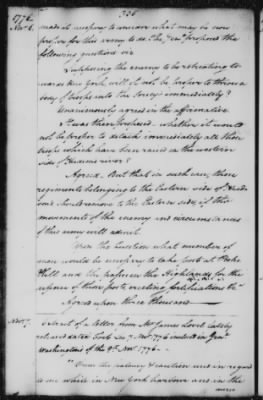 336
1776
Nov. 6.
made it necessary to consider what may be now
proper for this army to do. The Gen. proposed the
following questions viz
Supposing the enemy to be retreating to-
wards New York, will it not be proper to throw a
body of troops into the Jerseys immediately?
Unanimously agreed in the affirmative
It was then proposed, whether it would
not be proper to detach immediately all those
troops which have been raised on the western
side of Hudsons river?
Agreed. But that in such case, those
regiments belonging to the Eastern side of Hud-
sons should remove to the Eastern side, if the
movements of the enemy and circumstances
of this army will admit.
Upon the Question what number of
men would be necessary to take post at
Hill and the passes in the Highlands for the
defence of those forts, erecting fortifications &c
Agreed upon three thousand
Nov. 7.
Extract of a letter from Mr James Lovel lately
released dated Fort Lee 7 Nov. 1776 enclosed in Gen.
Washingtons of the 9th Nov. 1776.
"From the nature & caution used in regard
to me while in New York harbour and in the